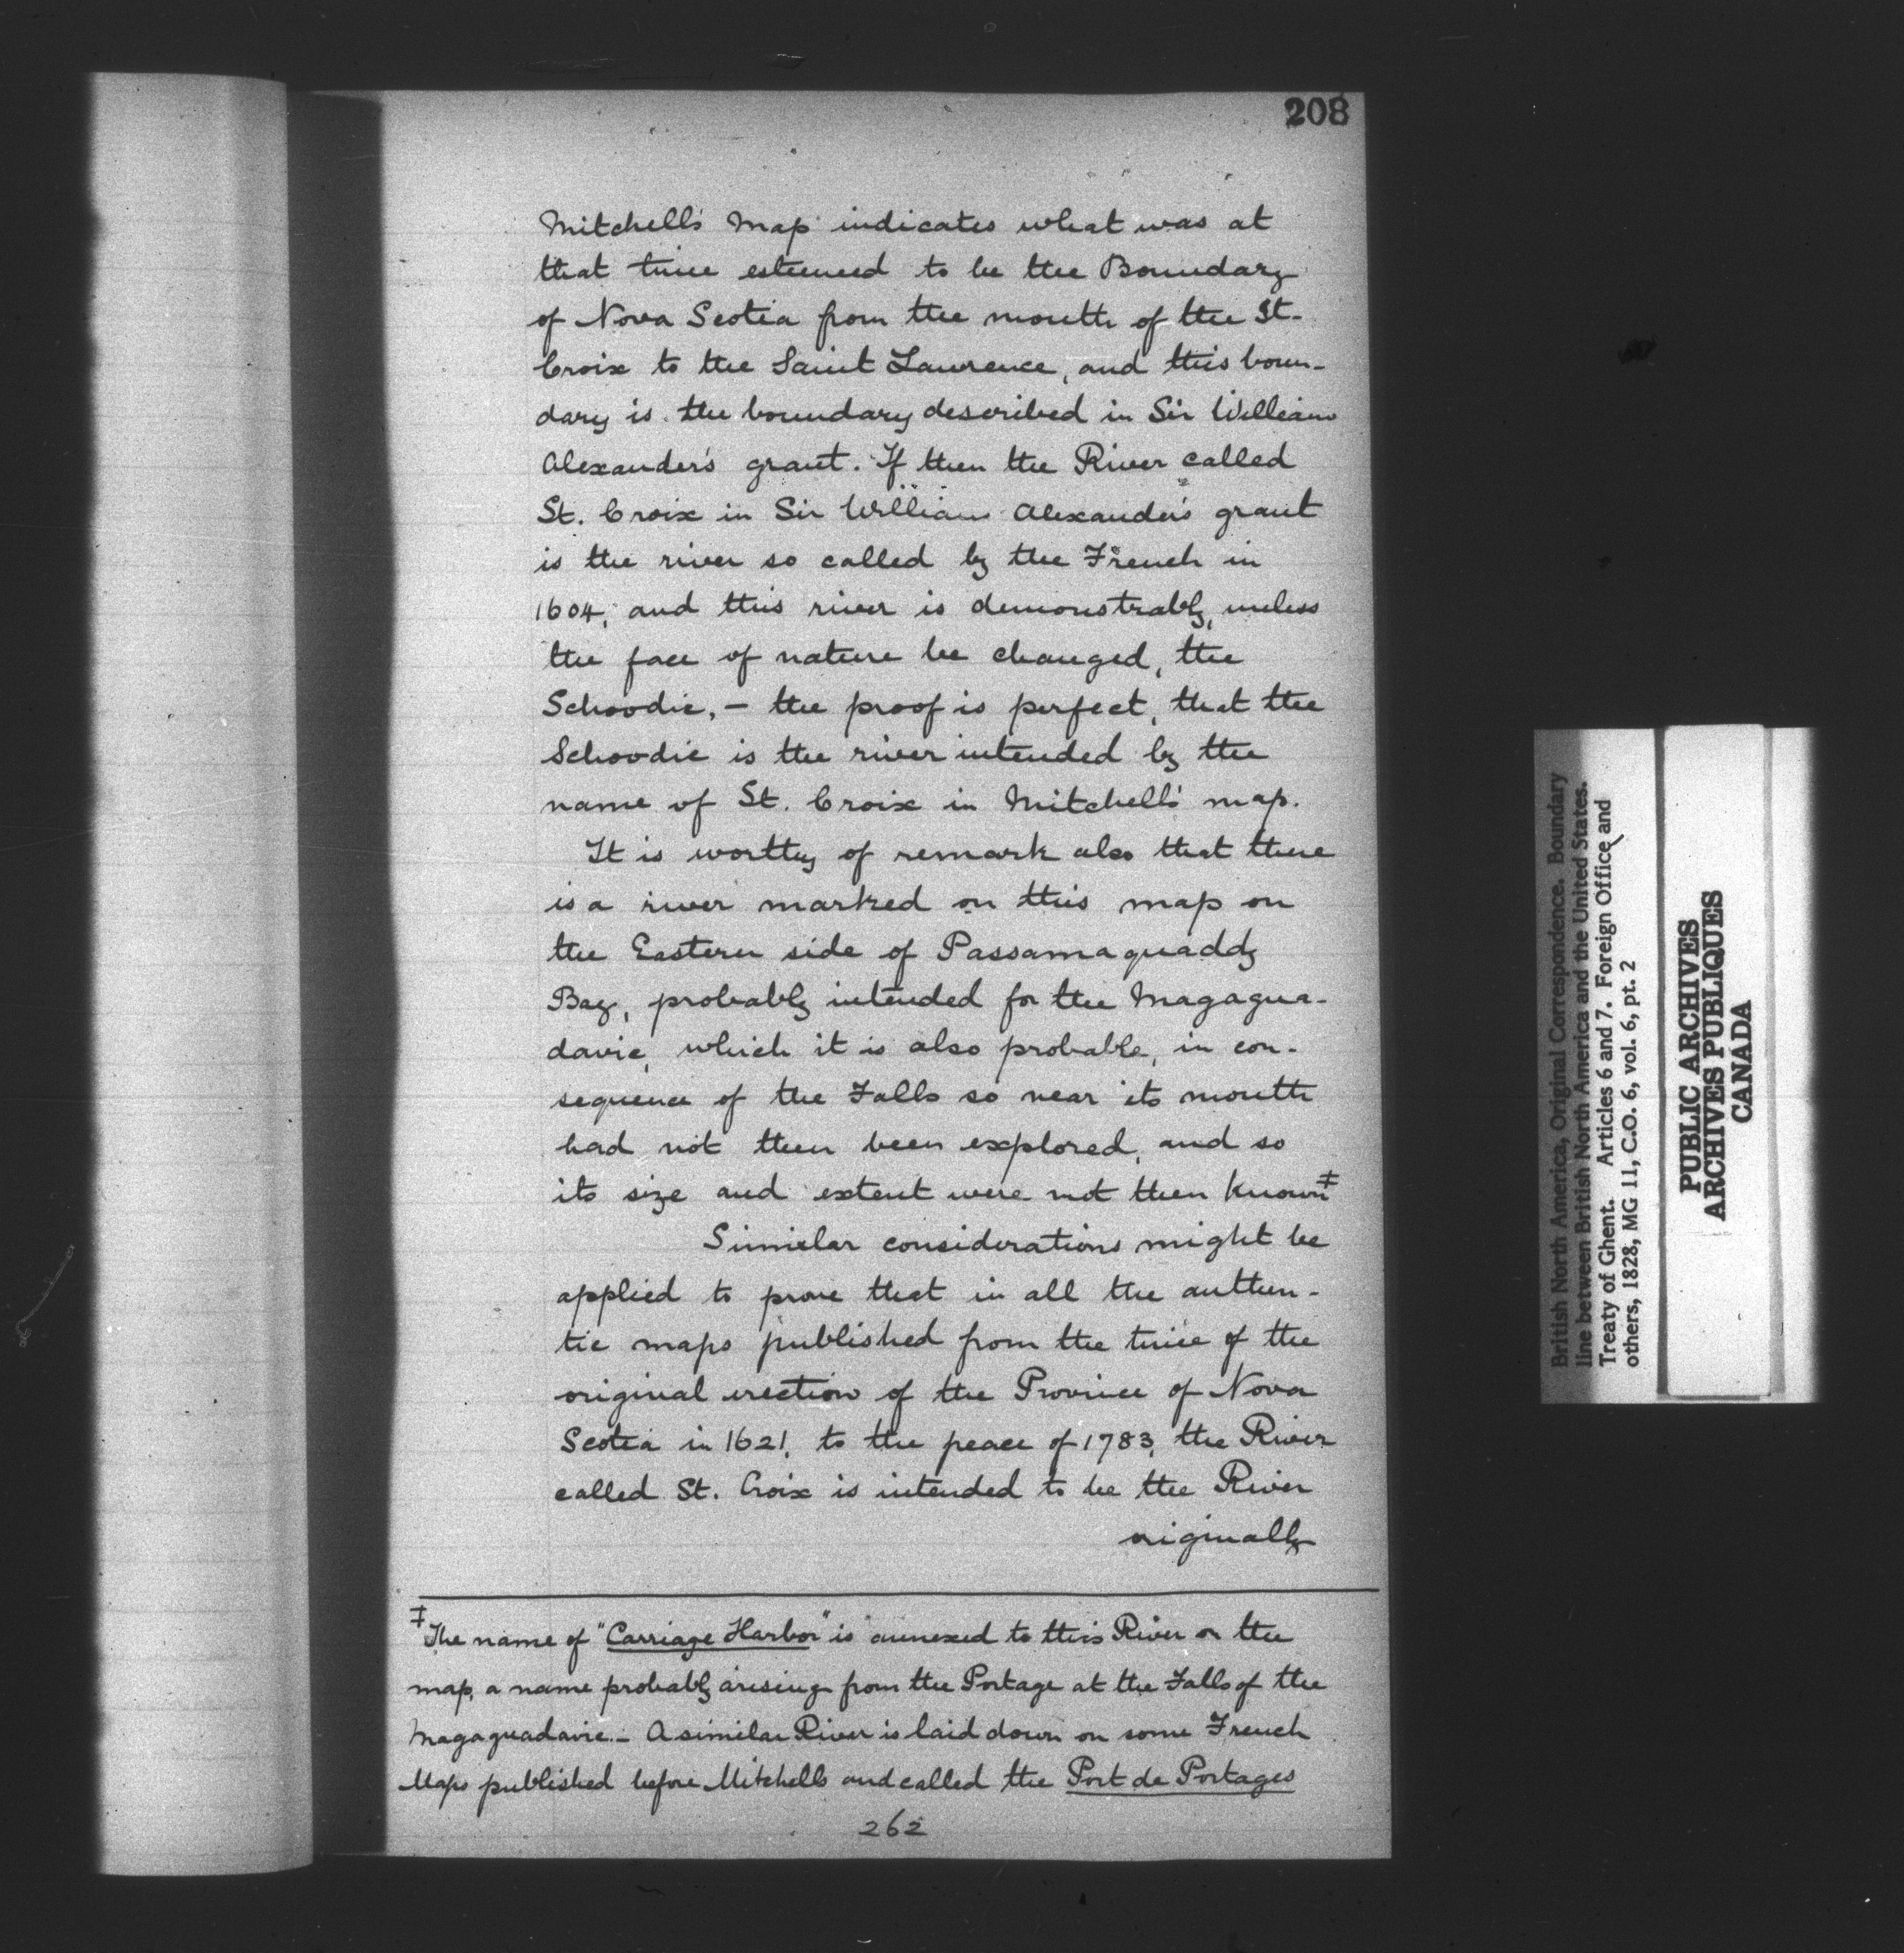 208
Mitchell's Map indicates what was at
that time esteemed to be the Boundary
of Nova Scotia from the mouth of the St.
Croix to the Saint Lawrence, and this boun-
dary is the boundary described in Sir William
Alexander's grant. If then the River called
St. Croix in Sir William Alexander's grant
is the river so called by the French in
1604, and this river is demonstrably, unless
the face of nature be changed, the
Schoodic, — the proof is perfect, that the
Schoodic is the river intended by the
name of St. Croix in Mitchell's map.
It is worthy of remark also that there
is a river marked on this map on
the Eastern side of Passamaquaddy
Bay, probably intended for the Magagua-
davic, which it is also probable, in con-
sequence of the Falls so near its mouth
had not then been explored, and so
its size and extent were not then known ‡
Similar considerations might be
applied to prove that in all the authen-
tic maps published from the time of the
original erection of the Province of Nova
Scotia in 1621, to the peace of 1783, the River
called St. Croix is intended to be the River
originally
‡ The name of "Carriage Harbor" is annexed to this River on the
map, a name probably arising from the Portage at the Falls of the
Magaguadavic. – A similar River is laid down on some French
Maps published before Mitchells and called the Port de Portages
262
British North America, Original Correspondence. Boundary
line between British North America and the United States.
Treaty of Ghent. Articles 6 and 7. Foreign Office and
others, 1828, MG 11, C.O. 6, vol. 6, pt. 2
PUBLIC ARCHIVES
ARCHIVES PUBLIQUES
CANADA